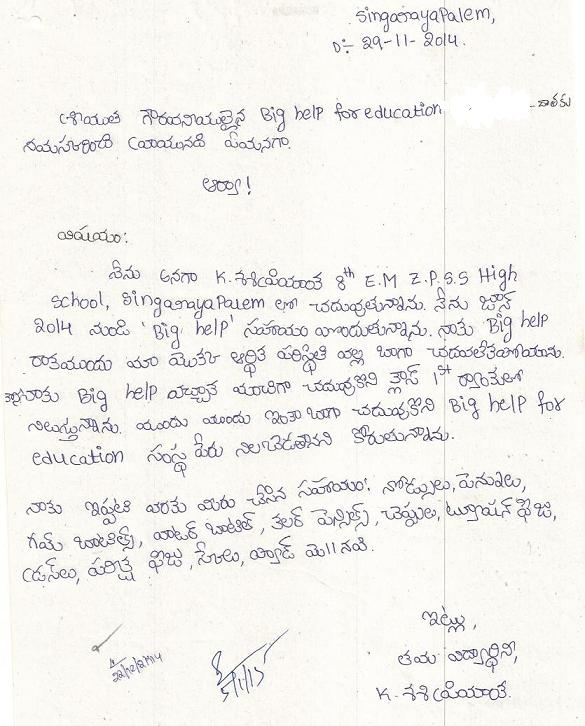 Singarayapalem,
D:- 29-11-2014.
శ్రీయుత గౌరవనీయులైన Big help for education దాతకు
నమస్కరించి వ్రాయునది ఏమనగా.
ఆర్యా!
విషయం:
నేను అనగా K. శశిప్రియాంక 8th E.M Z.P.S.S High
School, Singarayapalem లో చదువుతున్నాను. నేను జూన్
2014 నుండి 'Big help' సహాయం పొందుతున్నాను. నాకు Big help
రాకముందు మా యొక్క ఆర్థిక పరిస్థితి వల్ల బాగా చదువలేకపోయాను.
నాకు Big help వచ్చాక మంచిగా చదువుకొని క్లాస్ 1st ర్యాంకులో
నిలుస్తున్నాను. ముందు ముందు ఇంకా బాగా చదువుకొని Big help for
education సంస్థ పేరు నిలబెడతానని కోరుతున్నాను.
నాకు ఇప్పటి వరకు మీరు చేసిన సహాయం: నోట్సులు, పెనులు,
గమ్ బాటిల్స్, వాటర్ బాటిల్, కలర్ పెన్సిల్స్, చెప్పులు, ట్యూషన్ ఫీజు,
డ్రస్‌లు, పరీక్ష ఫీజు, స్కేలు, ప్యాడ్ మొ॥నవి.
ఇట్లు,
తమ విద్యార్థిని,
K. శశిప్రియాంక.
22/12/2014
5/1/15